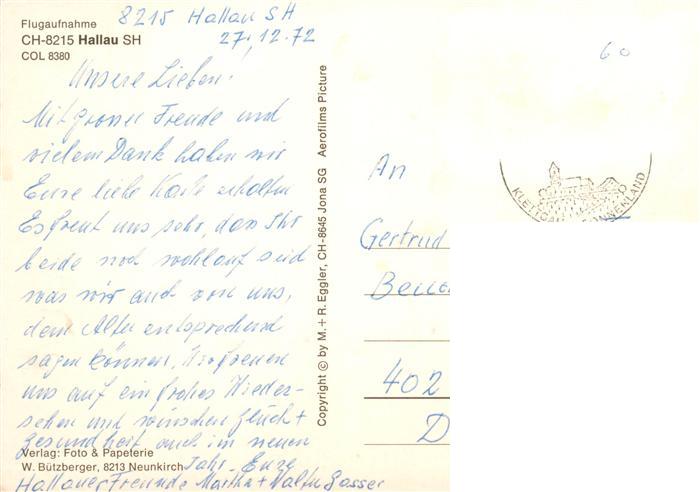 Flugaufnahme
CH-8215 Hallau SH
COL 8380
8215 Hallau SH
27.12.72
Unsere Lieben!
Mit grosser Freude und
vielem Dank haben wir
Eure liebe Karte erhalten
Es freut uns sehr, dass Ihr
beide noch wohlauf seid
was wir auch von uns,
dem Alter entsprechend
sagen können. Wir freuen
uns auf ein frohes Wieder-
sehen und wünschen Glück +
Gesundheit auch im neuen
Jahr. Eure
Hallauer Freunde Martha + Walter Gasser
Verlag: Foto & Papeterie
W. Bützberger, 8213 Neunkirch
Copyright © by M. + R. Eggler, CH-8645 Jona SG Aerofilms Picture
60
An
Gertrud
402
D